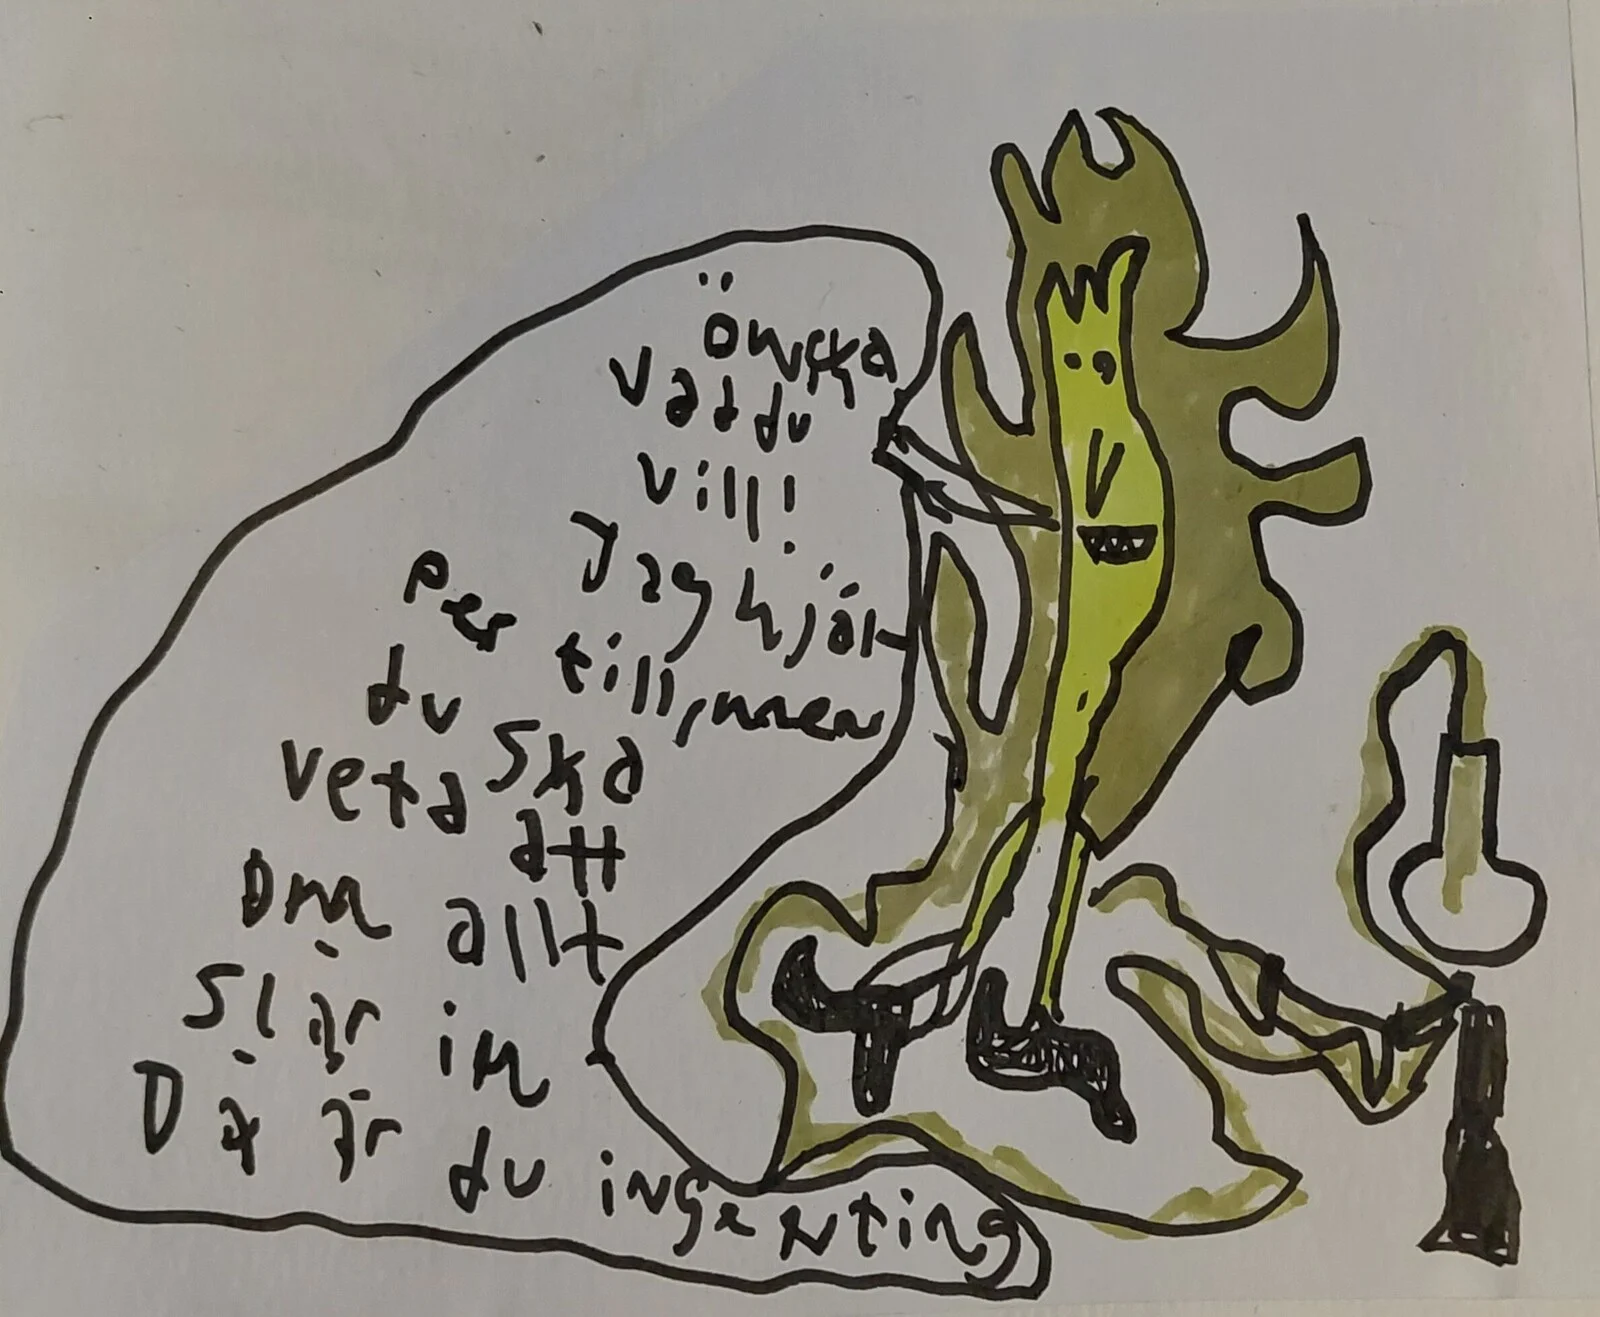 Önska
vad du
vill!
Jag hjäl-
per till, innen
du ska
veta att
Om allt
slår in
Då är du ingenting